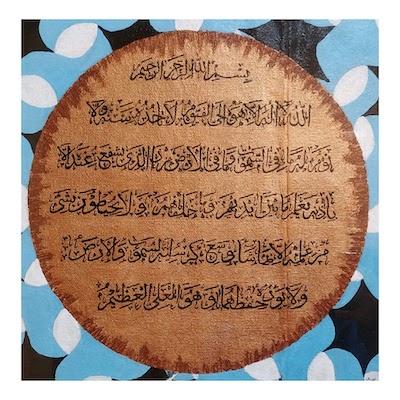 بسم الله الرحمن الرحيم
الله لا اله الا هو الحي القيوم لا تاخذه سنة ولا
نوم له ما في السموت وما في الارض من ذا الذي يشفع عنده الا
باذنه يعلم ما بين ايديهم وما خلفهم ولا يحيطون بشئ
من علمه الا بما شا وسع كرسيه السموت والارض
ولا يوده حفظهما وهو العلي العظيم